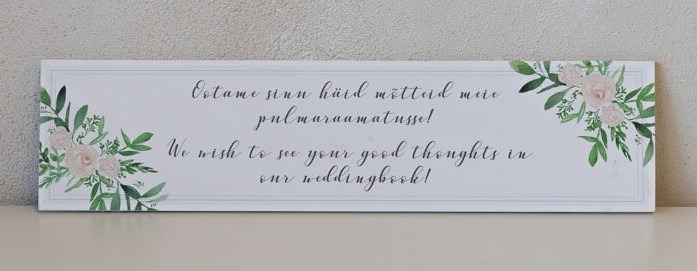 Ootame sinu häid mõtteid meie
pulmaraamatusse!
We wish to see your good thoughts in
our weddingbook!